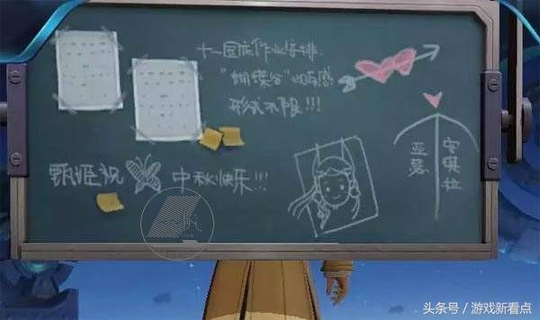 十一国庆作业安排
"蝴蝶谷"收有感
形式不限!!!
甄姬祝 中秋快乐!!!
亚瑟
安琪拉
头条号/游戏新看点